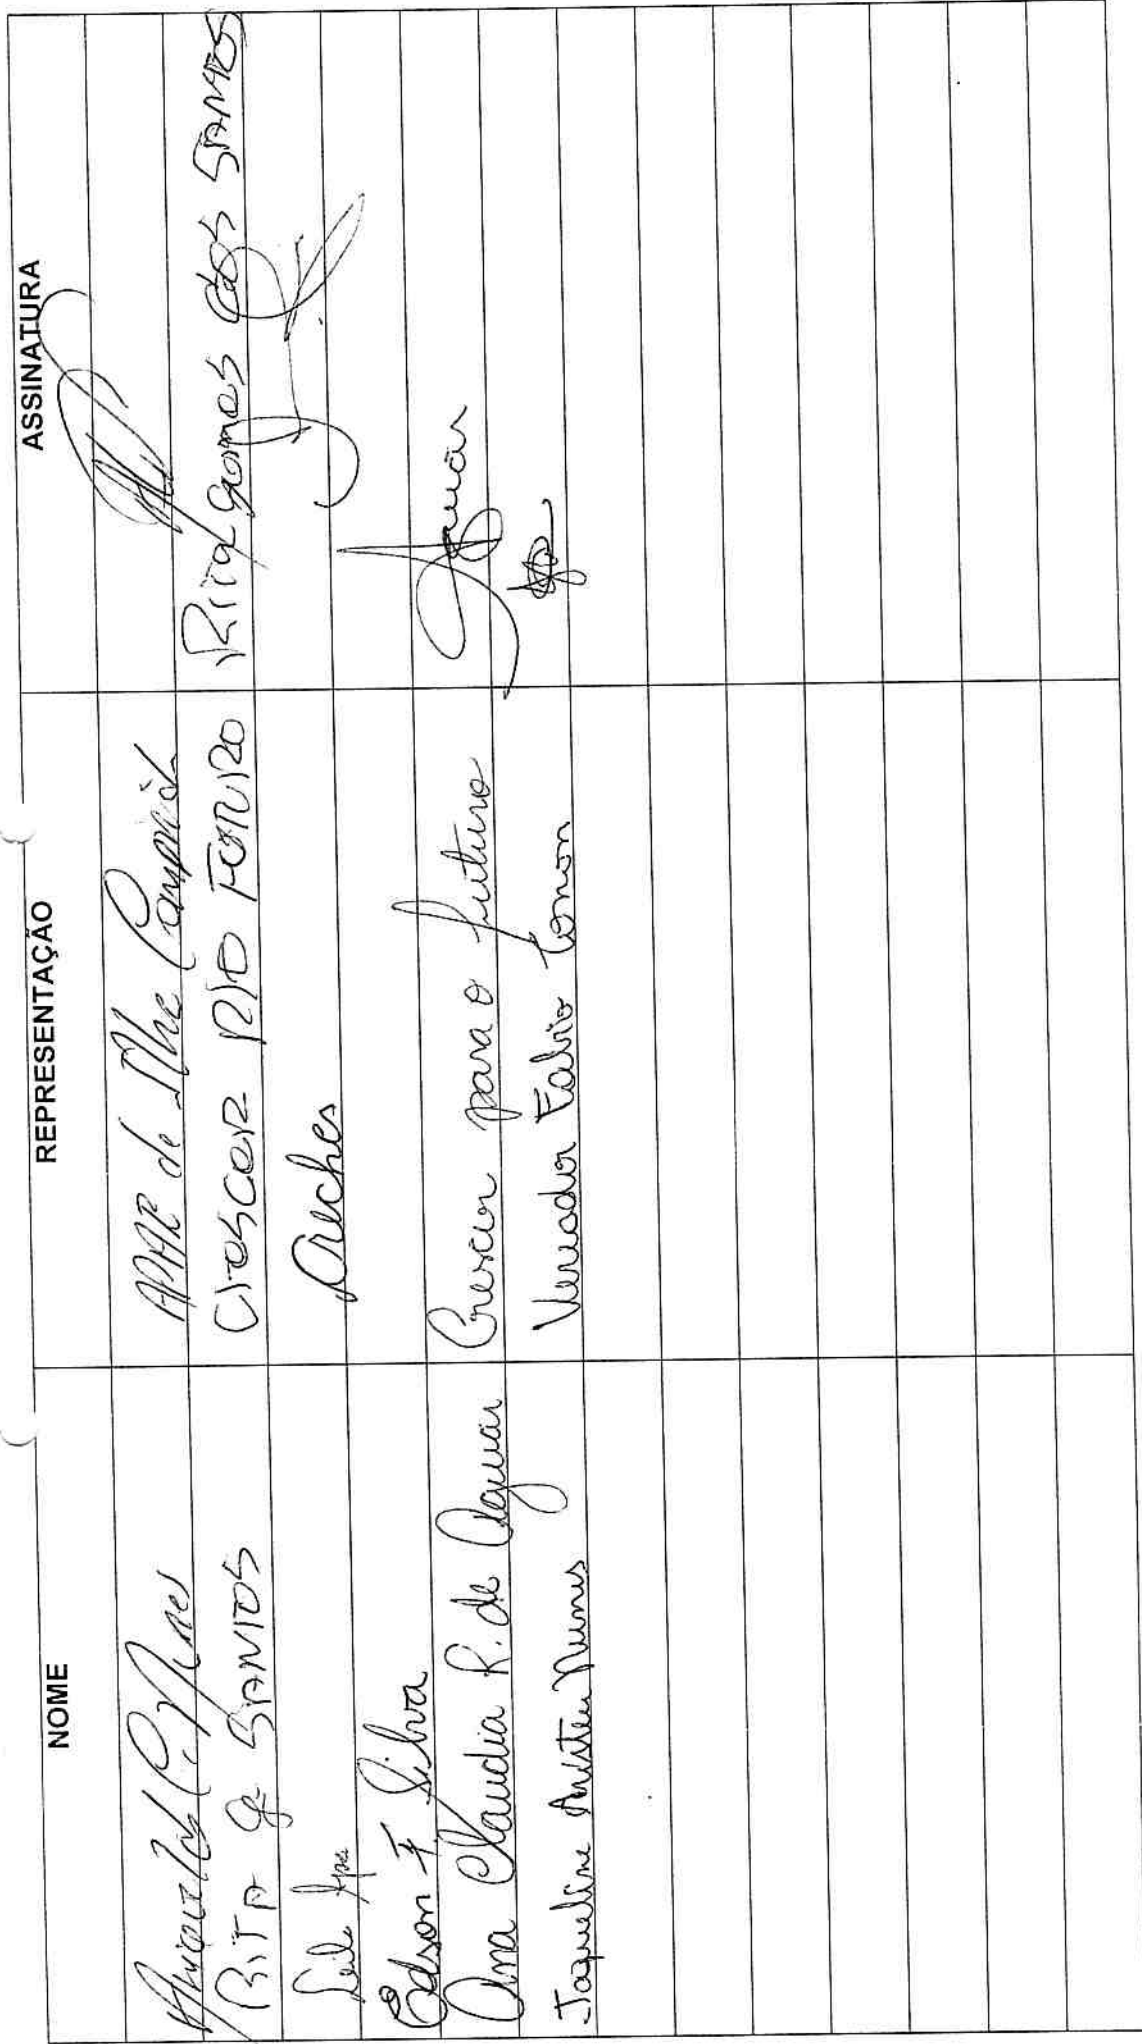 NOME REPRESENTAÇÃO ASSINATURA
C. Nunes APAE de Ilha Comprida
RITA G SANTOS Crescer RIO FORRO Rita Gomes dos SANTOS
Creches
Edson F Silva
Ana Claudia R. de Aguiar Crescer para o futuro Aguiar
Jaqueline Nunes Vereador Fabio Tonon